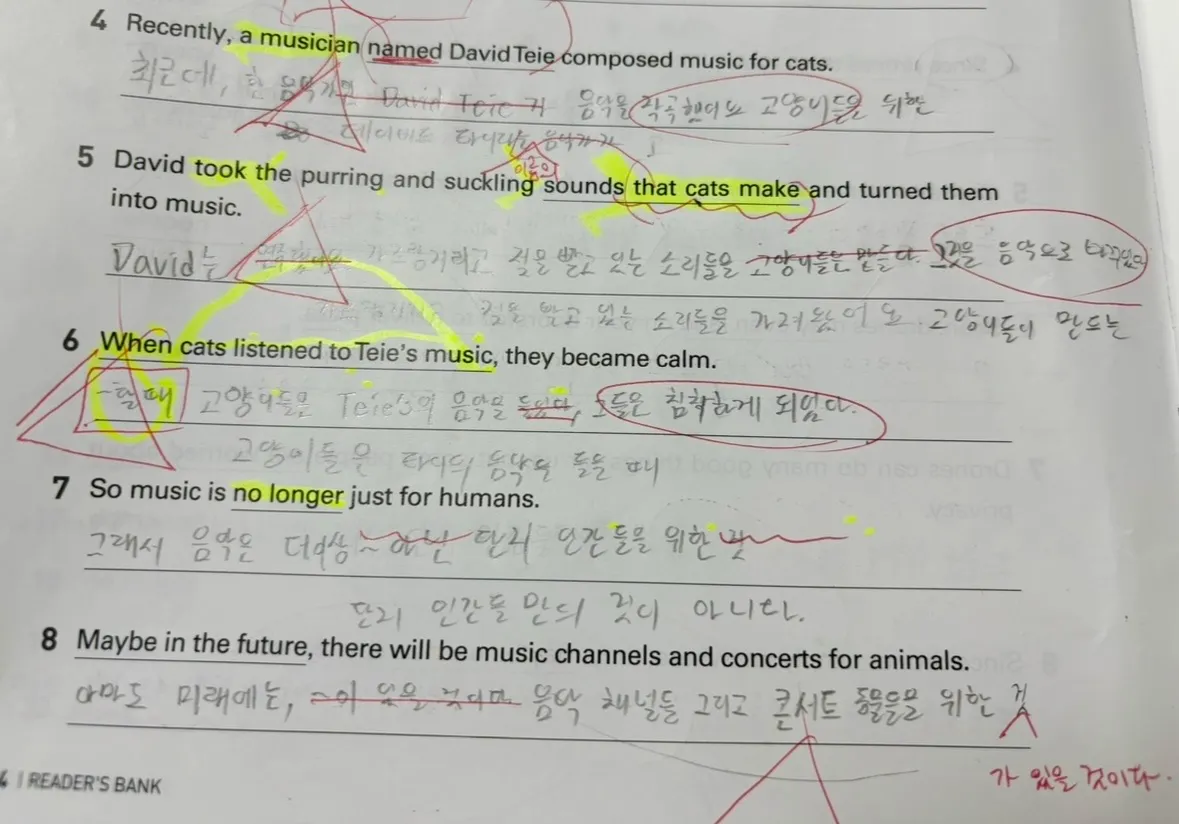 4 Recently, a musician named David Teie composed music for cats.
최근에, 한 음악가인 David Teie 가 음악을 작곡했어요 고양이들을 위한
데이비드 타이라는 음악가가
5 David took the purring and suckling sounds that cats make and turned them
into music.
David는 가르랑거리고 젖을 빨고 있는 소리들을 고양이들은 만들다. 그것을 음악으로 바꾸었다
젖을 빨고 있는 소리들을 가져왔어요 고양이들이 만드는
6 When cats listened to Teie's music, they became calm.
~할 때 고양이들은 Teie's의 음악을 들었다, 그들은 침착하게 되었다.
고양이들은 타이의 음악을 들을 때
7 So music is no longer just for humans.
그래서 음악은 더이상 ~ 아닌 단지 인간들을 위한
단지 인간들만의 것이 아니다.
8 Maybe in the future, there will be music channels and concerts for animals.
아마도 미래에는, ~이 있을 것이며 음악 채널들 그리고 콘서트 동물들을 위한 것
가 있을 것이다.
4 | READER'S BANK